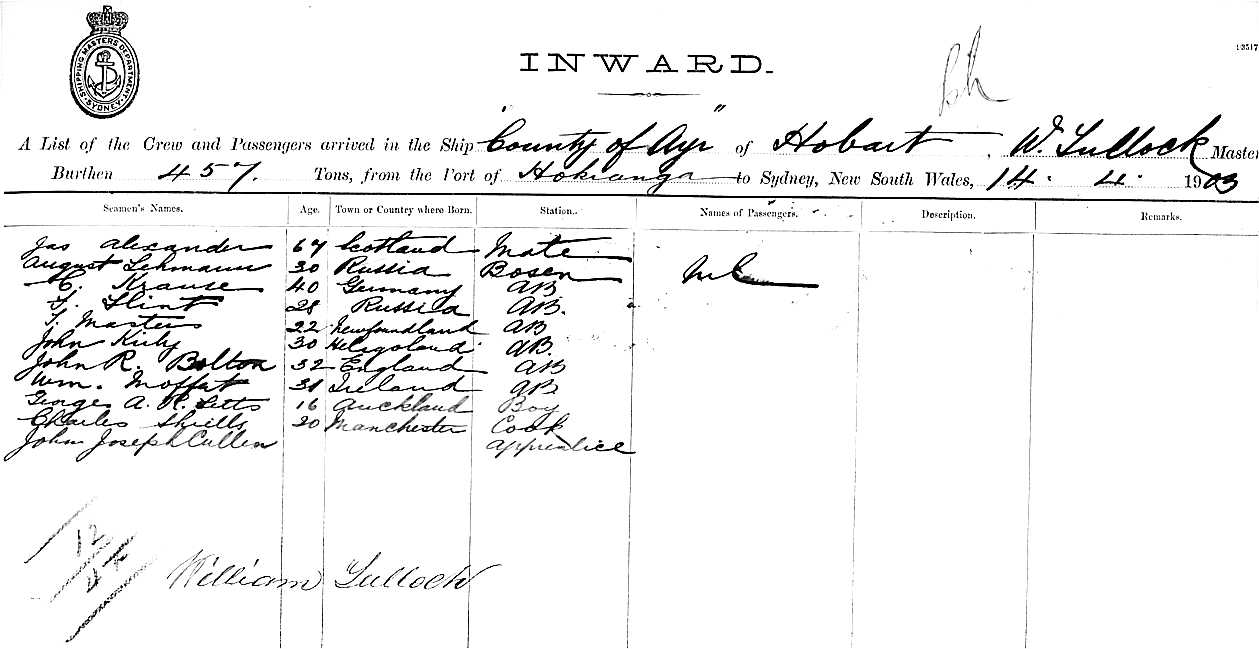 SHIPPING MASTERS DEPARTMENT SYDNEY
INWARD.
12517
A List of the Crew and Passengers arrived in the Ship "County of Ayr" of Hobart, W. Tullock Master
Burthen 457. Tons, from the Port of Hokianga to Sydney, New South Wales, 14. 4. 1903
Seamen's Names. Age. Town or Country where Born. Station. Names of Passengers. Description. Remarks.
Jas Alexander 67 Scotland Mate
August Lehmann 30 Russia Bosen Nil
C. Krause 40 Germany AB
F. Flint 28 Russia AB.
T. Masters 22 Newfoundland AB
John Kirby 30 Heligoland AB.
John R. Bolton 32 England AB
Wm. Moffat 31 Ireland AB
Georges A. R. Letts 16 Auckland Boy
Charles Shrills 20 Manchester Cook
John Joseph Cullen Apprentice
12
William Tullock